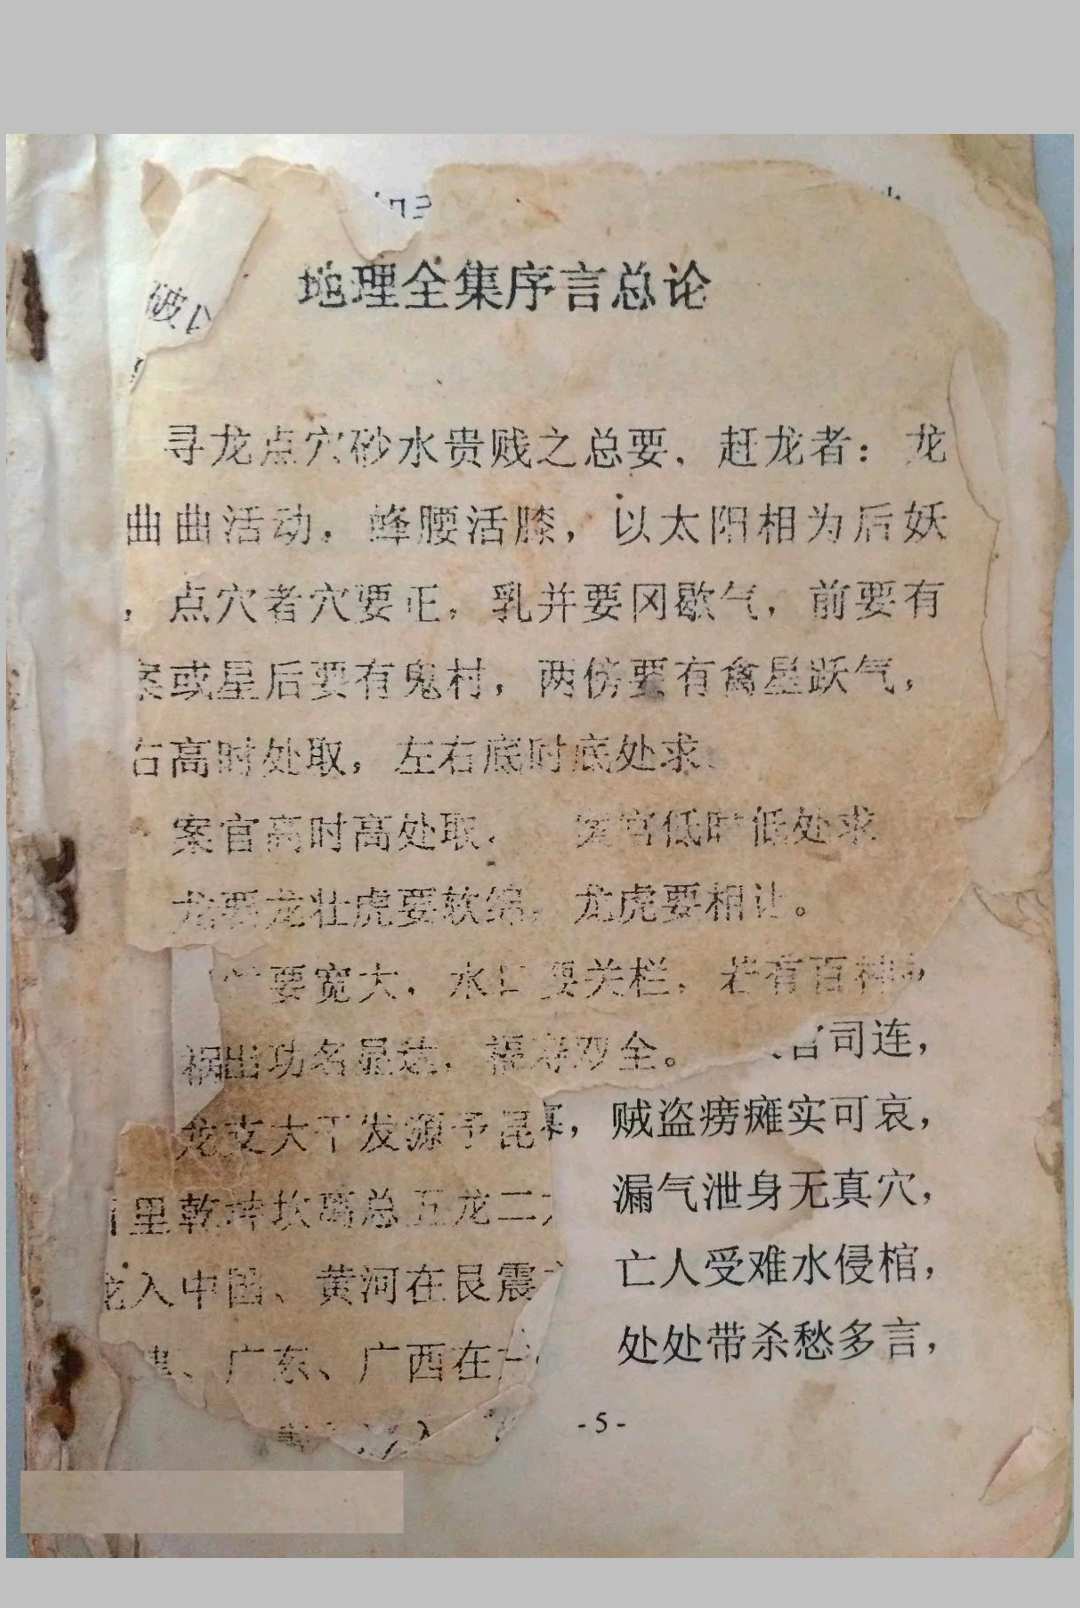 地理全集序言总论
破
寻龙点穴砂水贵贱之总要、赶龙者：龙
曲曲活动，蜂腰活膝，以太阳相为后妖
，点穴者穴要正，乳并要冈歇气，前要有
案或星后要有鬼村，两傍要有禽星跃气，
右高时处取，左右底时底处求
案官高时高处取， 案官低时低处求
龙要龙壮虎要软绵，龙虎要相让。
要宽大，水口要关栏，若有百神
祸出功名显达，福寿双全。 官司连，
龙支大干发源于昆 ，贼盗痨瘫实可哀，
里乾坤坎离总五龙二 漏气泄身无真穴，
龙入中国、黄河在艮震 亡人受难水侵棺，
、广东、广西在 处处带杀愁多言，
入
- 5 -